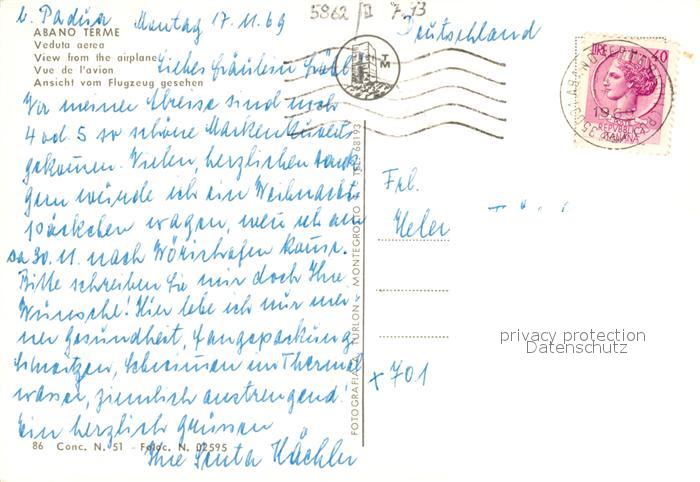 b. Padua Montag 17.11.69
5862/II 7.73
Deutschland
ABANO TERME
Veduta aerea
View from the airplane
Vue de l'avion
Ansicht vom Flugzeug gesehen
Liebes Fräulein
Vor meiner Abreise sind noch
4 od. 5 so schöne Marken Kuverts
gekommen. Vielen, herzlichen Dank
Gern würde ich ein Weihnachts
päckchen wagen, wenn ich am
Sa 30.11. nach Wörishofen komme.
Bitte schreiben Sie mir doch Ihre
Wünsche! Hier lebe ich nur mei-
ner Gesundheit, Fangopackung,
Schwitzen, Schwimmen im Thermal
wasser, ziemlich anstrengend!
Ein herzlich Grüssen
Ihre
86 Conc. N. 51 - Foloc. N. 02595
FOTOGRAFIA A. TURLON - MONTEGROTTO - TEL. 68193
TM
LIRE 40
POSTE
REPVBBLICA
ITALIANA
ABANO TERME
35031
Frl.
x 701
privacy protection
Datenschutz